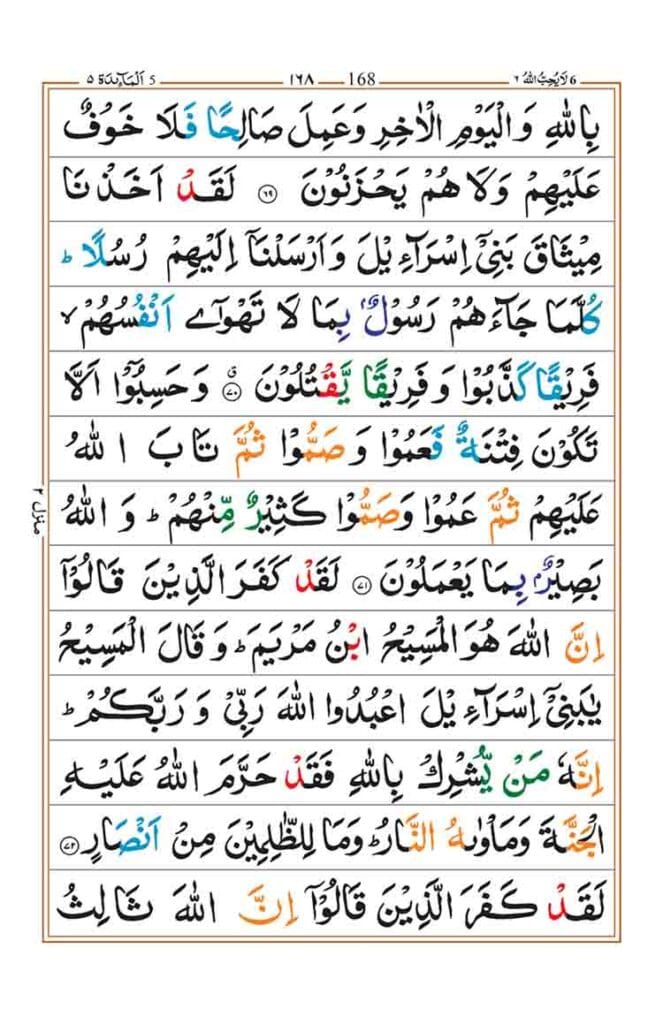 6 لَا يُحِبُّ اللهُ ٦ 168 ١٦٨ 5 اَلْمَآئِدَة ٥
بِاللّٰهِ وَالْيَوْمِ الْاٰخِرِ وَعَمِلَ صَالِحًا فَلَا خَوْفٌ
عَلَيْهِمْ وَلَا هُمْ يَحْزَنُوْنَ ۝۶۹ لَقَدْ اَخَذْنَا
مِيْثَاقَ بَنِيْۤ اِسْرَآءِيْلَ وَاَرْسَلْنَاۤ اِلَيْهِمْ رُسُلًا ؕ
كُلَّمَا جَآءَهُمْ رَسُوْلٌۢ بِمَا لَا تَهْوٰۤى اَنْفُسُهُمْ ۙ
فَرِيْقًا كَذَّبُوْا وَفَرِيْقًا يَّقْتُلُوْنَ ۝۷۰ۗ وَحَسِبُوْۤا اَلَّا
تَكُوْنَ فِتْنَةٌ فَعَمُوْا وَصَمُّوْا ثُمَّ تَابَ اللّٰهُ
عَلَيْهِمْ ثُمَّ عَمُوْا وَصَمُّوْا كَثِيْرٌ مِّنْهُمْ ؕ وَاللّٰهُ
بَصِيْرٌۢ بِمَا يَعْمَلُوْنَ ۝۷۱ لَقَدْ كَفَرَ الَّذِيْنَ قَالُوْۤا
اِنَّ اللّٰهَ هُوَ الْمَسِيْحُ ابْنُ مَرْيَمَ ؕ وَقَالَ الْمَسِيْحُ
يٰبَنِيْۤ اِسْرَآءِيْلَ اعْبُدُوا اللّٰهَ رَبِّيْ وَرَبَّكُمْ ؕ
اِنَّهٗ مَنْ يُّشْرِكْ بِاللّٰهِ فَقَدْ حَرَّمَ اللّٰهُ عَلَيْهِ
الْجَنَّةَ وَمَاْوٰىهُ النَّارُ ؕ وَمَا لِلظّٰلِمِيْنَ مِنْ اَنْصَارٍ ۝۷۲
لَقَدْ كَفَرَ الَّذِيْنَ قَالُوْۤا اِنَّ اللّٰهَ ثَالِثُ
منزل ۲